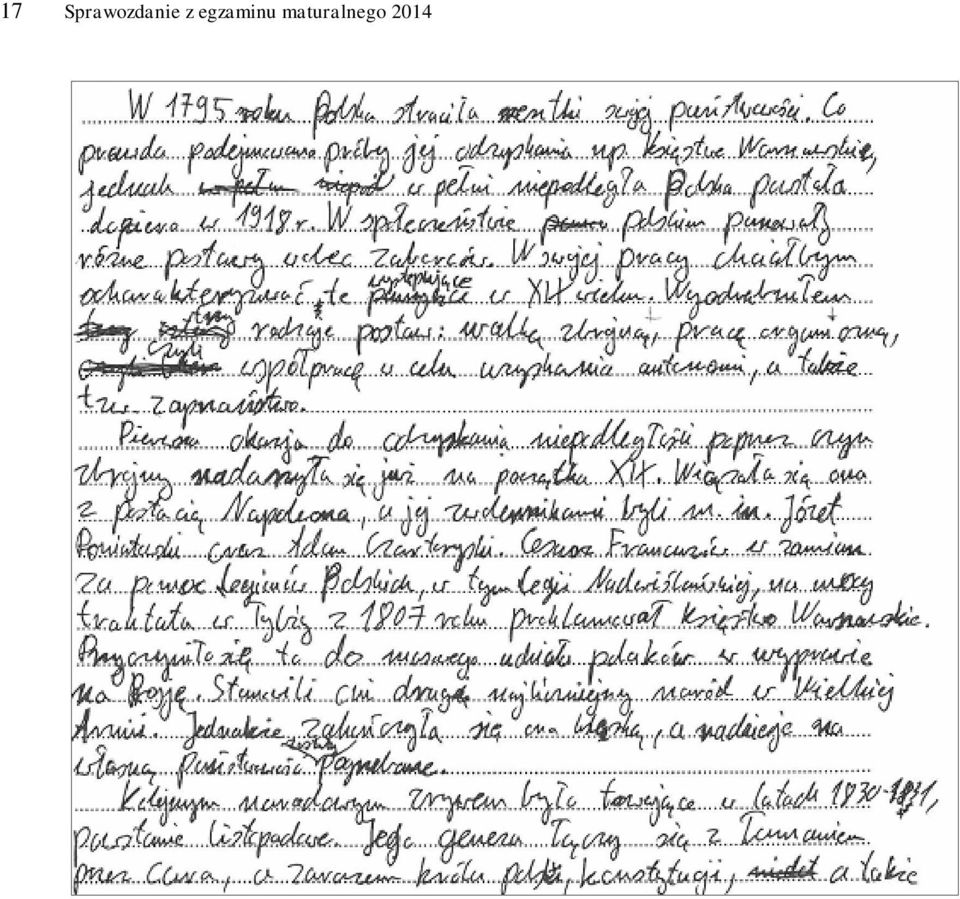 17 Sprawozdanie z egzaminu maturalnego 2014
W 1795 roku Polska straciła resztki swojej państwowości. Co
prawda podejmowano próby jej odzyskania np. Księstwo Warszawskie,
jednak w pełni niepodległa Polska powstała
dopiero w 1918 r. W społeczeństwie polskim panowały
różne postawy wobec zaborców. W swojej pracy chciałbym
ocharakteryzować te występujące w XIX wieku. Wyodrębniłem
trzy rodzaje postaw: walkę zbrojną, pracę organiczną,
czyli współpracę w celu uzyskania autonomii, a także
tzw. zaprzaństwo.
Pierwsza okazja do odzyskania niepodległości poprzez czyn
zbrojny nadarzyła się już na początku XIX. Wiązała się ona
z postacią Napoleona, a jej zwolennikami byli m. in. Józef
Poniatowski oraz Adam Czartoryski. Cesarz Francuzów w zamian
za pomoc Legionów Polskich, w tym Legii Nadwiślańskiej, na mocy
traktatu w Tylży z 1807 roku proklamował Księstwo Warszawskie.
Przyczyniło się to do masowego udziału polaków w wyprawie
na Rosję. Stanowili oni drugą najliczniejszy naród w Wielkiej
Armii. Jednakże zakończyła się ona klęską, a nadzieje na
własną państwowość zostały pogrzebane.
Kolejnym narodowym zrywem było trwające w latach 1830-1831,
powstanie listopadowe. Jego geneza łączy się z łamaniem
przez cara, a zarazem króla polski, konstytucji, a także